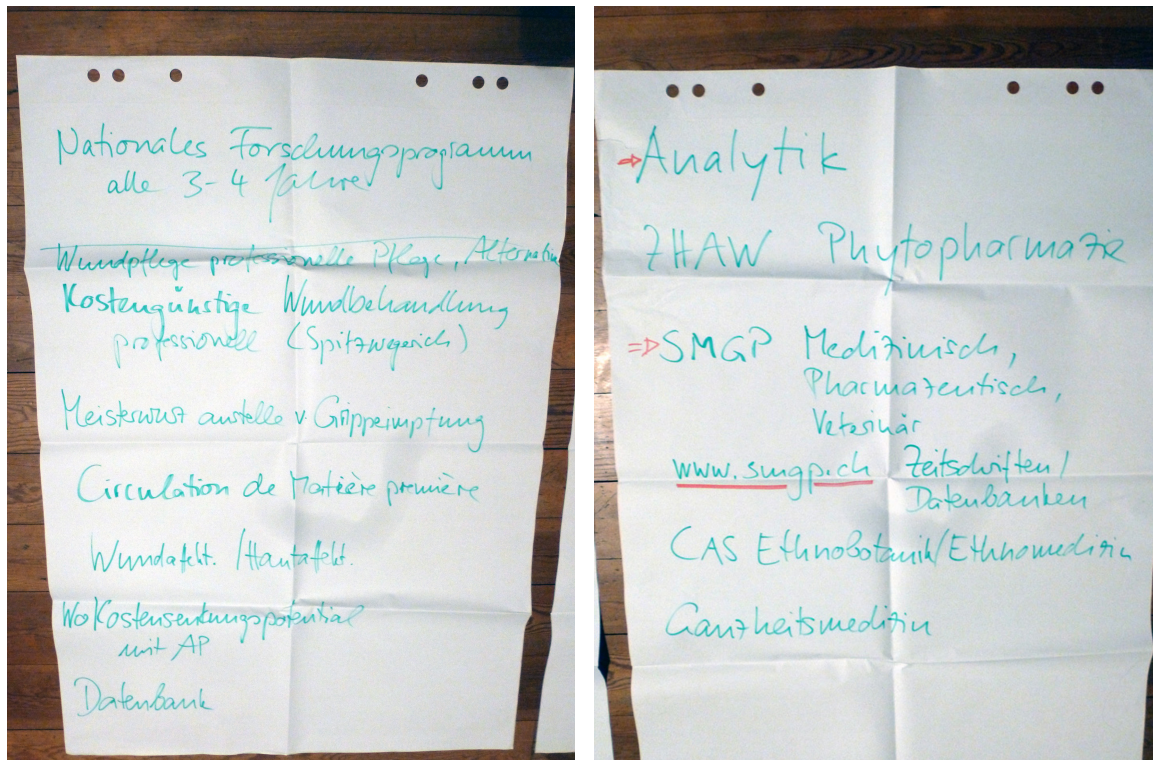 Nationales Forschungsprogramm
alle 3-4 Jahre
Wundpflege professionelle Pflege, Alternativ
Kostengünstige Wundbehandlung
professionell (Spitzwegerich)
Meisterwurz anstelle v. Grippeimpfung
Circulation de Matière première
Wundafekt. / Hautafekt.
Wo Kostensenkungspotential
mit AP
Datenbank
⇒ Analytik
ZHAW Phytopharmazie
⇒ SMGP Medizinisch,
Pharmazeutisch,
Veterinär
www.smgp.ch Zeitschriften/
Datenbanken
CAS Ethnobotanik/Ethnomedizin
Ganzheitsmedizin